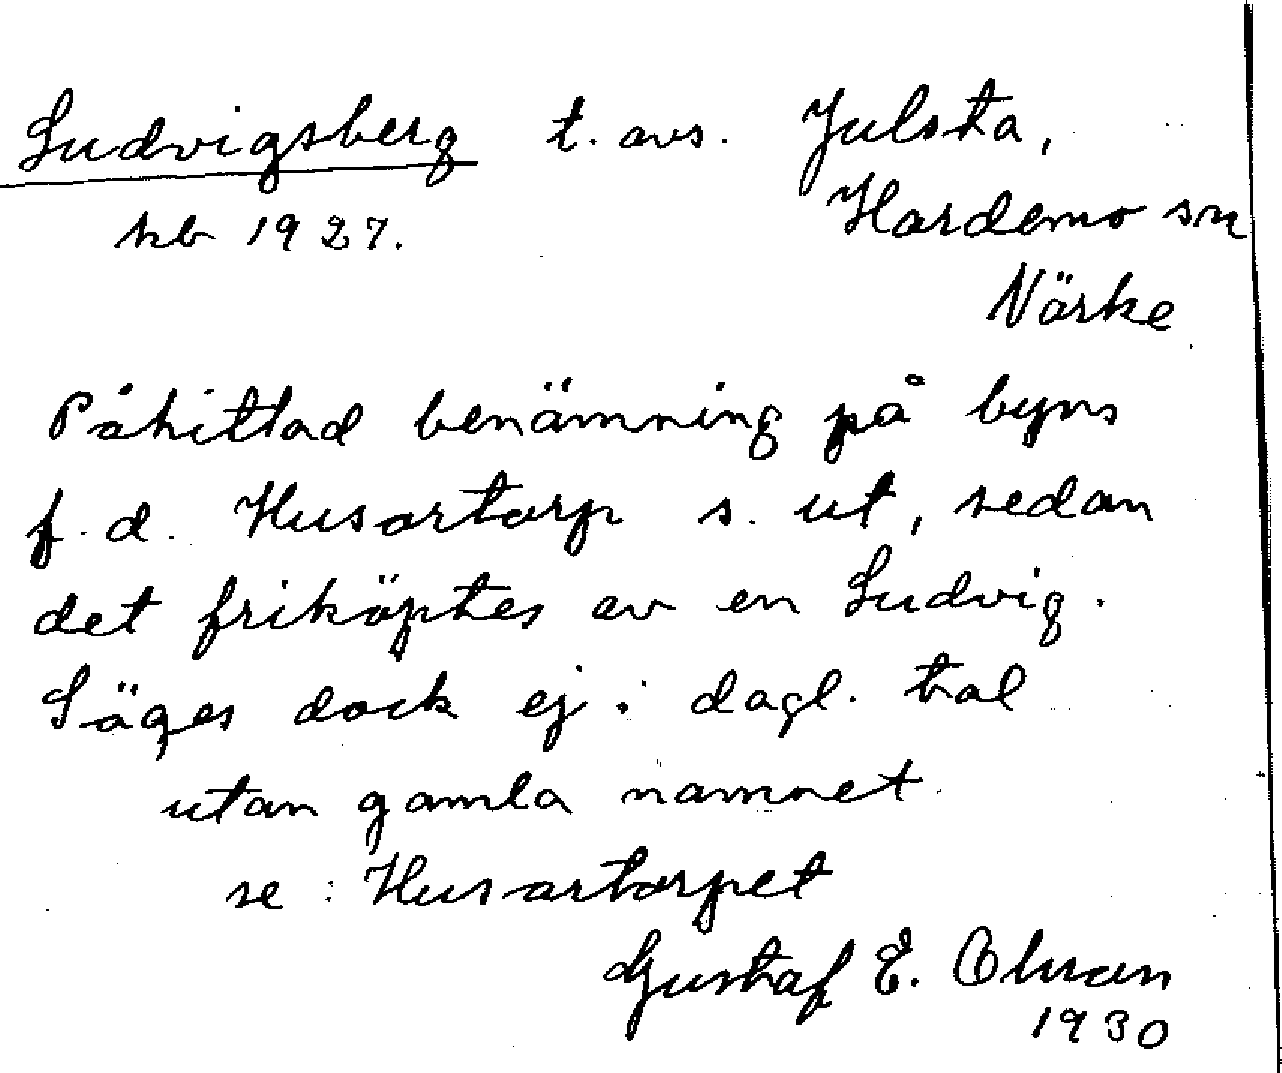 Ludvigsberg t. avs. Julsta,
kb 1927. Hardemo sn
Närke
Påhittad benämning på byns
f.d. Husartorp s. ut, sedan
det friköptes av en Ludvig.
Säges dock ej i dagl. tal
utan gamla namnet
se: Husartorpet
Gustaf E. Ohman
1930